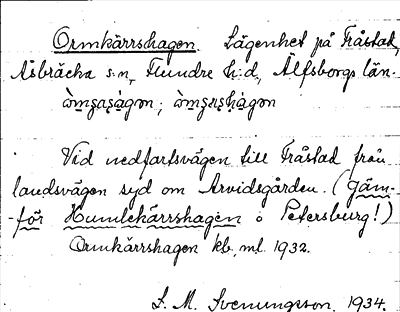 Ormkärrshagen. Lägenhet på Tråstad,
Åsbräcka s:n, Flundre h:d, Älfsborgs län.
Vid nedfartsvägen till Tråstad från
landsvägen syd om Arvidsgården. (Jäm-
-för Humlekärrshagen o Petersburg!)
Ormkärrshagen kb, ml. 1932.
S. M. Svenungsson, 1934.